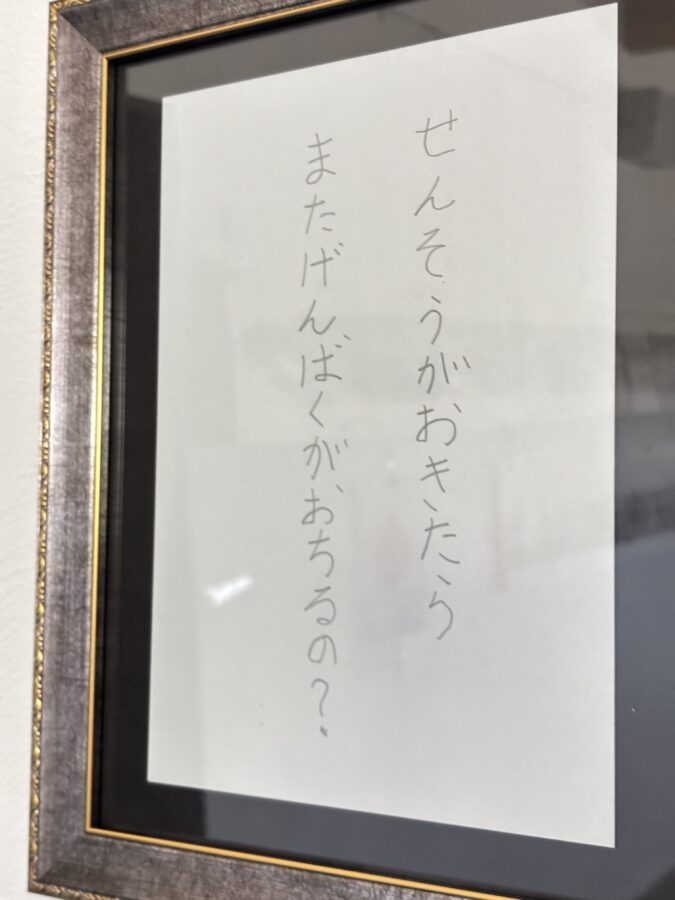 せんそうがおきたら
またげんばくがおちるの?